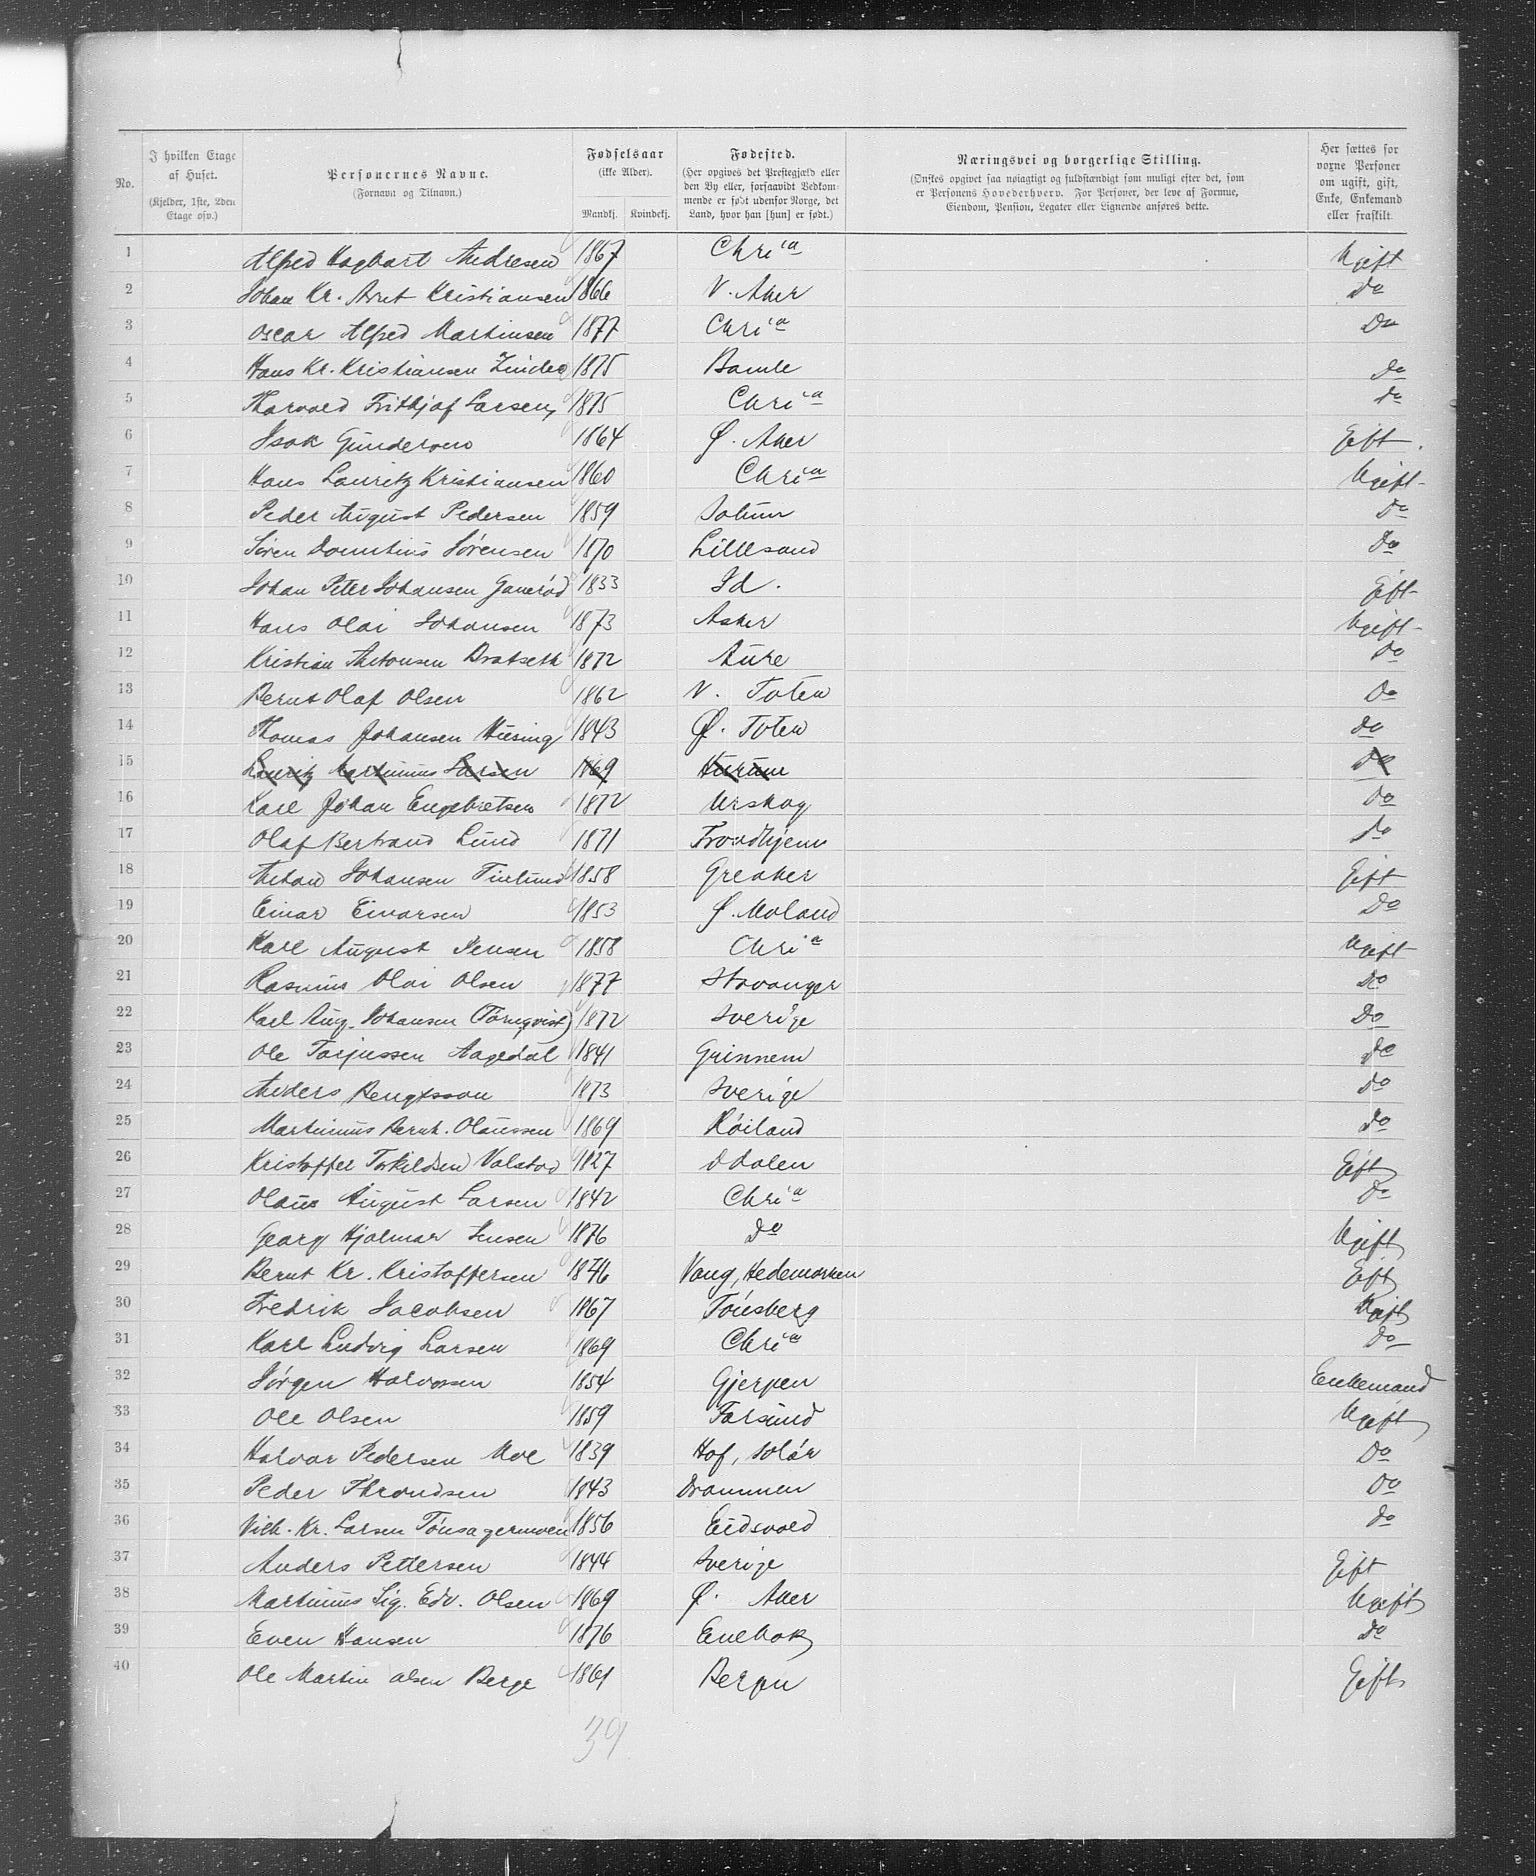 No. | I hvilken Etage af Huset. (Kjelder, 1ste, 2den Etage osv.) | Personernes Navne. (Fornavn og Tilnavn.) | Fødselsaar (ikke Alder). Mandkj. Kvindekj. | Fødested. (Her opgives det Prestegjæld eller den By eller, forsaavidt Vedkommende er født udenfor Norge, det Land, hvor han [hun] er født.) | Næringsvei og borgerlige Stilling. (Ønskes opgivet saa nøiagtigt og fuldstændigt som muligt efter det, som er Personens Hovederhverv. For Personer, der leve af Formue, Eiendom, Pension, Legater eller Lignende anføres dette.) | Her sættes for voxne Personer om ugift, gift, Enke, Enkemand eller fraskilt.
1 Alfred Hagbart Andresen 1867 Chria Ugift
2 Johan Kr. Arnt Kristiansen 1866 V. Aker Do
3 Oscar Alfred Martinsen 1877 Chria Do
4 Hans Kr. Kristiansen 1875 Bamle Do
5 Thorvald Frithjof Larsen 1875 Chria Do
6 Isak Gundersen 1864 Ø. Aker Gift
7 Hans Lauritz Kristiansen 1860 Chria Ugift
8 Peder August Pedersen 1859 Solum Do
9 Søren Sørensen 1870 Lillesand Do
10 Johan Peter Johansen Ganerød 1833 Id. Gift
11 Hans Olai Johansen 1873 Asker Ugift
12 Kristian Antonsen Dratseth 1872 Aure Do
13 Bernt Olaf Olsen 1862 V. Toten Do
14 Thomas Johansen 1843 Ø. Toten Do
15 Lauritz Martinius Larsen 1869 Hurum Do
16 Karl Johan Engebretsen 1872 Urskog Do
17 Olaf Bertrand Lund 1871 Trondhjem Do
18 Anton Johansen 1858 Greaker Gift
19 Einar Einarsen 1853 Ø. Moland Do
20 Karl August Jensen 1858 Chria Ugift
21 Rasmus Olai Olsen 1877 Stavanger Do
22 Karl Aug. Johansen (Törnqvist) 1872 Sverige Do
23 Ole Tarjussen Aagedal 1841 Do
24 Anders Bengtsson 1873 Sverige Do
25 Martinius Bernh. Olaussen 1869 Røiland Do
26 Kristoffer Torkildsen Valstad 1827 Odalen Gift
27 Olaus August Larsen 1842 Chria Do
28 Georg Hjalmar Jensen 1876 Do Ugift
29 Bernt Kr. Kristoffersen 1846 Vang, Hedemarken Gift
30 Fredrik Jacobsen 1867 Tönsberg Ugift
31 Karl Ludvig Larsen 1869 Chria Do
32 Jørgen Halvorsen 1854 Gjerpen Enkemand
33 Ole Olsen 1859 Farsund Ugift
34 Halvor Pedersen Moe 1839 Hof, Solør Do
35 Peder Throndsen 1843 Drammen Do
36 Vilh. Kr. Larsen Tönsagermoen 1856 Eidsvold Do
37 Anders Pettersen 1844 Sverige Gift
38 Martinius Sig. Edv. Olsen 1869 Ø. Aker Ugift
39 Even Hansen 1876 Enebak Do
40 Ole Martin Olsen Berge 1861 Bergen Gift
39